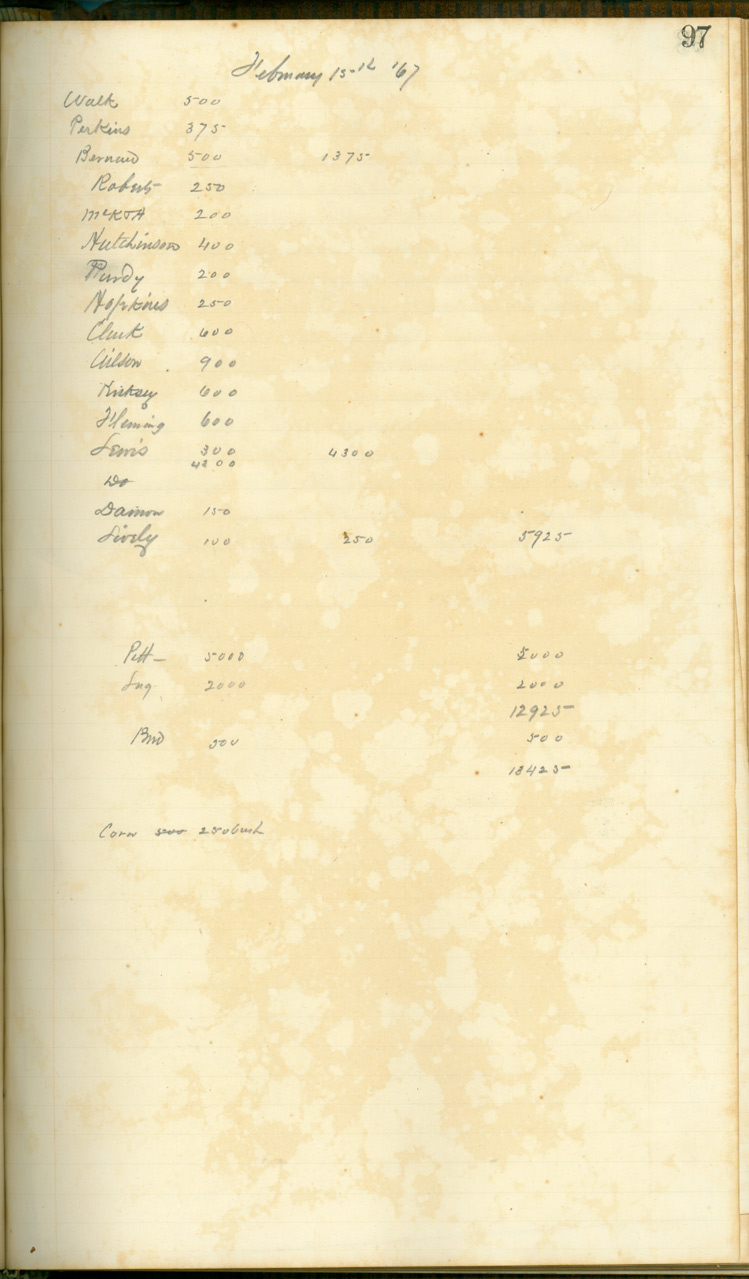 97
February 15th '67
Walk 500
Perkins 375
Bernard 500 1375
Roberts 250
McKTA 200
Hutchinson 400
Purdy 200
Hopkins 250
Clark 600
Wilson 900
600
Fleming 600
Lewis 300 4300
4200
Do
Damon 150
Lively 100 250 5925
Pitt 5000 5000
2000 2000
12925
500 500
13425
Corn 500 250 bush